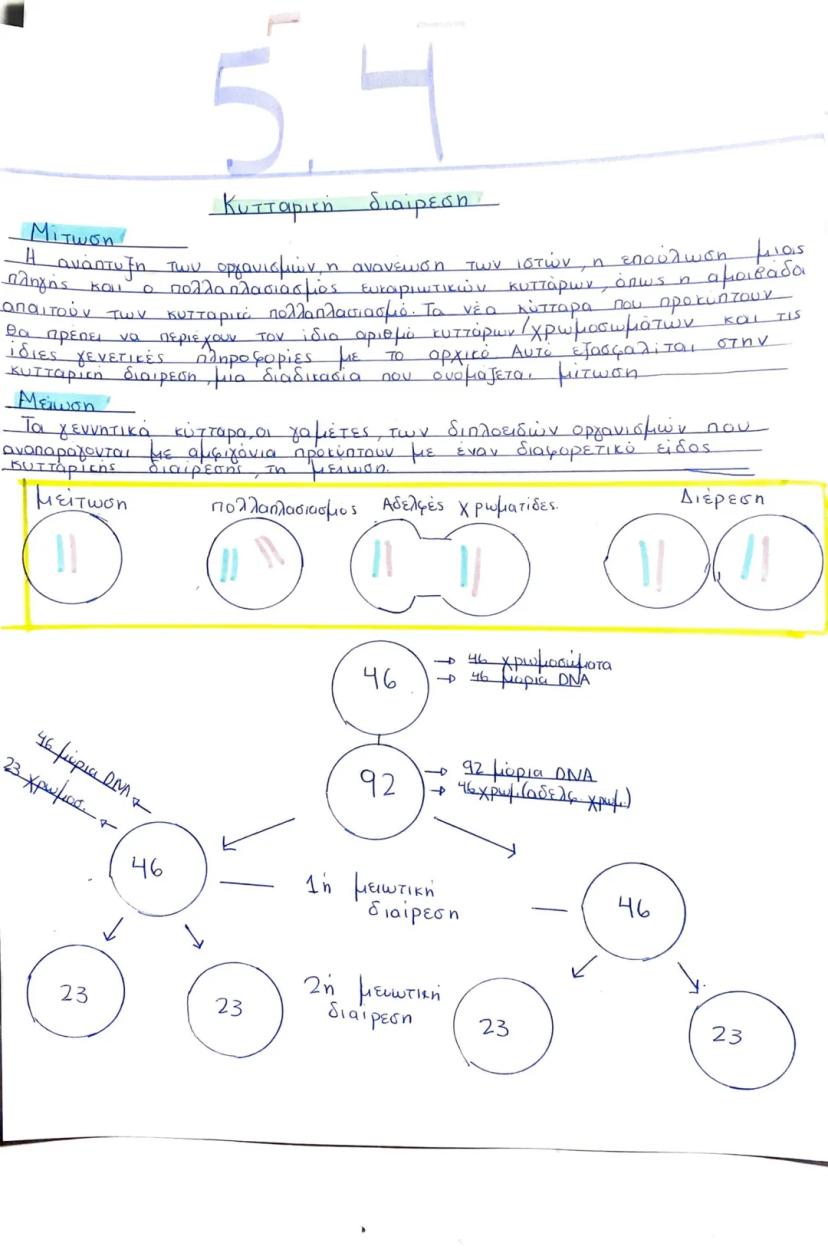 5.4
Κυτταρική διαίρεση
Μίτωση
Η ανάπτυξη των οργανισμών, η ανανέωση των ιστών, η επούλωση μιας
πληγής και ο πολλαπλασιασμός ευκαριωτικών κυττάρων, όπως η αμοιβάδα
απαιτούν των κυτταρικό πολλαπλασιασμό. Τα νέα κύτταρα που προκύπτουν
θα πρέπει να περιέχουν τον ίδιο αριθμό κυττάρων/χρωμοσωμάτων και τις
ίδιες γενετικές πληροφορίες με το αρχικό Αυτό εξασφαλίται στην
κυτταρική διαίρεση, μια διαδικασία που ονομάζεται μίτωση
Μείωση
Τα γεννητικά κύτταρα, οι γαμέτες, των διπλοειδών οργανισμών που
αναπαράγονται με αμφιγόνια προκύπτουν με έναν διαφορετικό είδος
κυτταρικής διαίρεσης, τη μείωση.
μείτωση πολλαπλασιασμός Αδελφές χρωματίδες. Διέρεση
46 → 46 χρωμοσώματα
→ 46 μόρια DNA
92 → 92 μόρια DNA
→ 46 χρωμ(αδελφ. χρωμ.)
46 μόρια DNA
23 χρωμοσ.
46 1η μειωτική
διαίρεση 46
23 23 2η μειωτική
διαίρεση 23 23